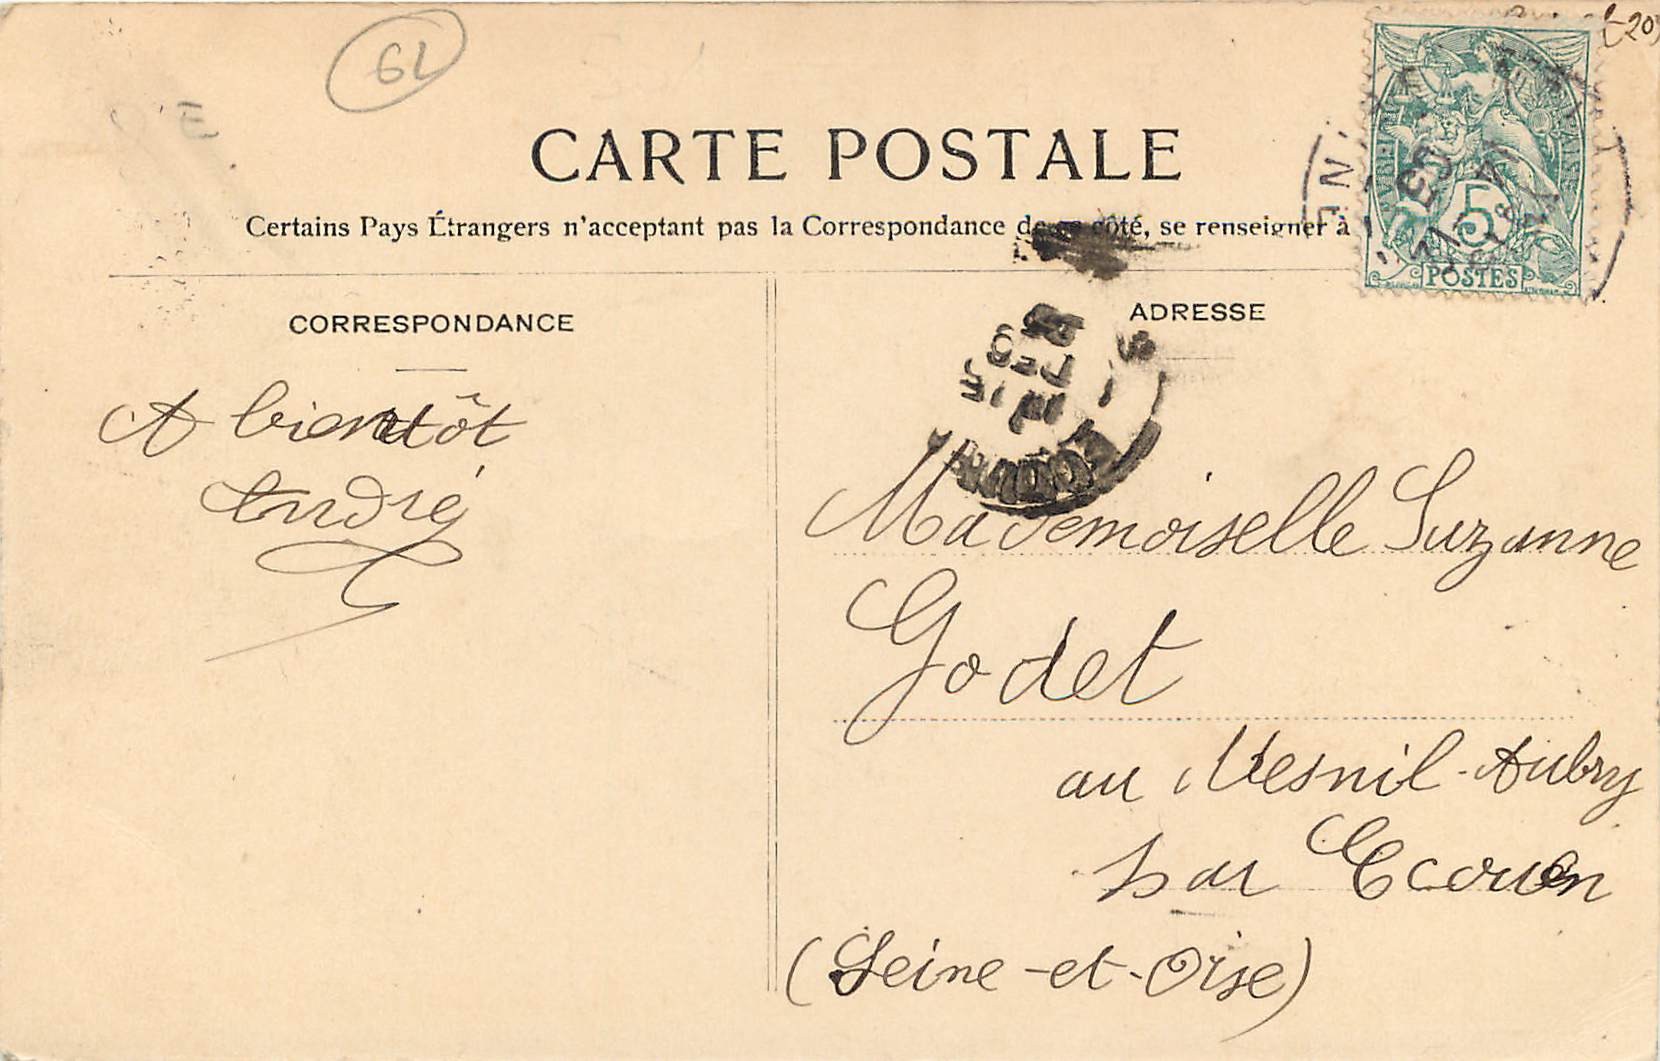 62
CARTE POSTALE
Certains Pays Étrangers n'acceptant pas la Correspondance de ce côté, se renseigner à
CORRESPONDANCE
ADRESSE
A bientôt
André
Mademoiselle Suzanne
Godet
au Mesnil-Aubry
par Ecouen
(Seine-et-Oise)
5
POSTES